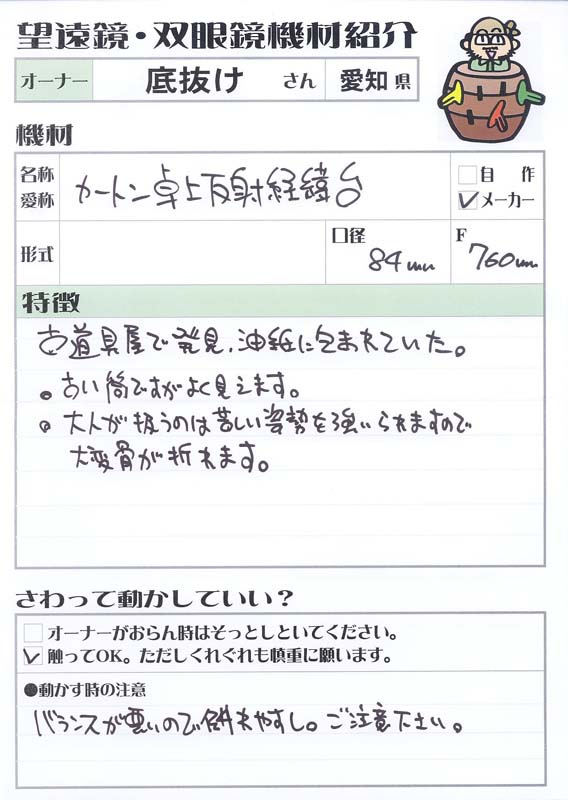 望遠鏡・双眼鏡機材紹介
オーナー 底抜け さん 愛知 県
機材
名称 愛称 カートン卓上反射経緯台 自作 メーカー
形式 口径 84mm F 760mm
特徴
古道具屋で発見、油紙に包まれていた。
• 古い筒ですがよく見えます。
• 大人が扱うのは苦しい姿勢を強いられますので
大変骨が折れます。
さわって動かしていい？
オーナーがおらん時はそっとしといてください。
触ってOK。ただしくれぐれも慎重に願います。
●動かす時の注意
バランスが悪いので倒れやすし。ご注意下さい。